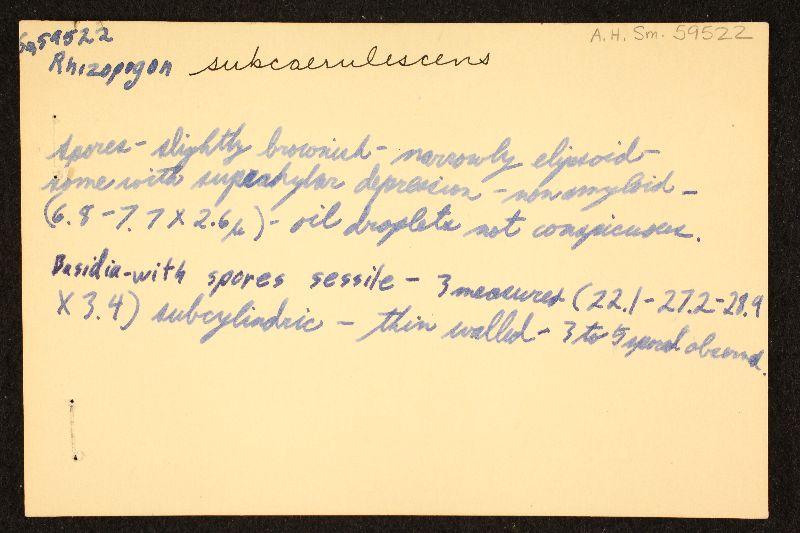 Sm 59522
A.H. Sm. 59522
Rhizopogon subcaerulescens
spores - slightly brownish - narrowly elipsoid -
some with suprahylar depression - nonamyloid -
(6.8 - 7.7 X 2.6 µ) - oil droplets not conspicuous.
Basidia - with spores sessile - 3 measured (22.1 - 27.2 - 28.9
X 3.4) subcylindric - thin walled - 3 to 5 spored observed.